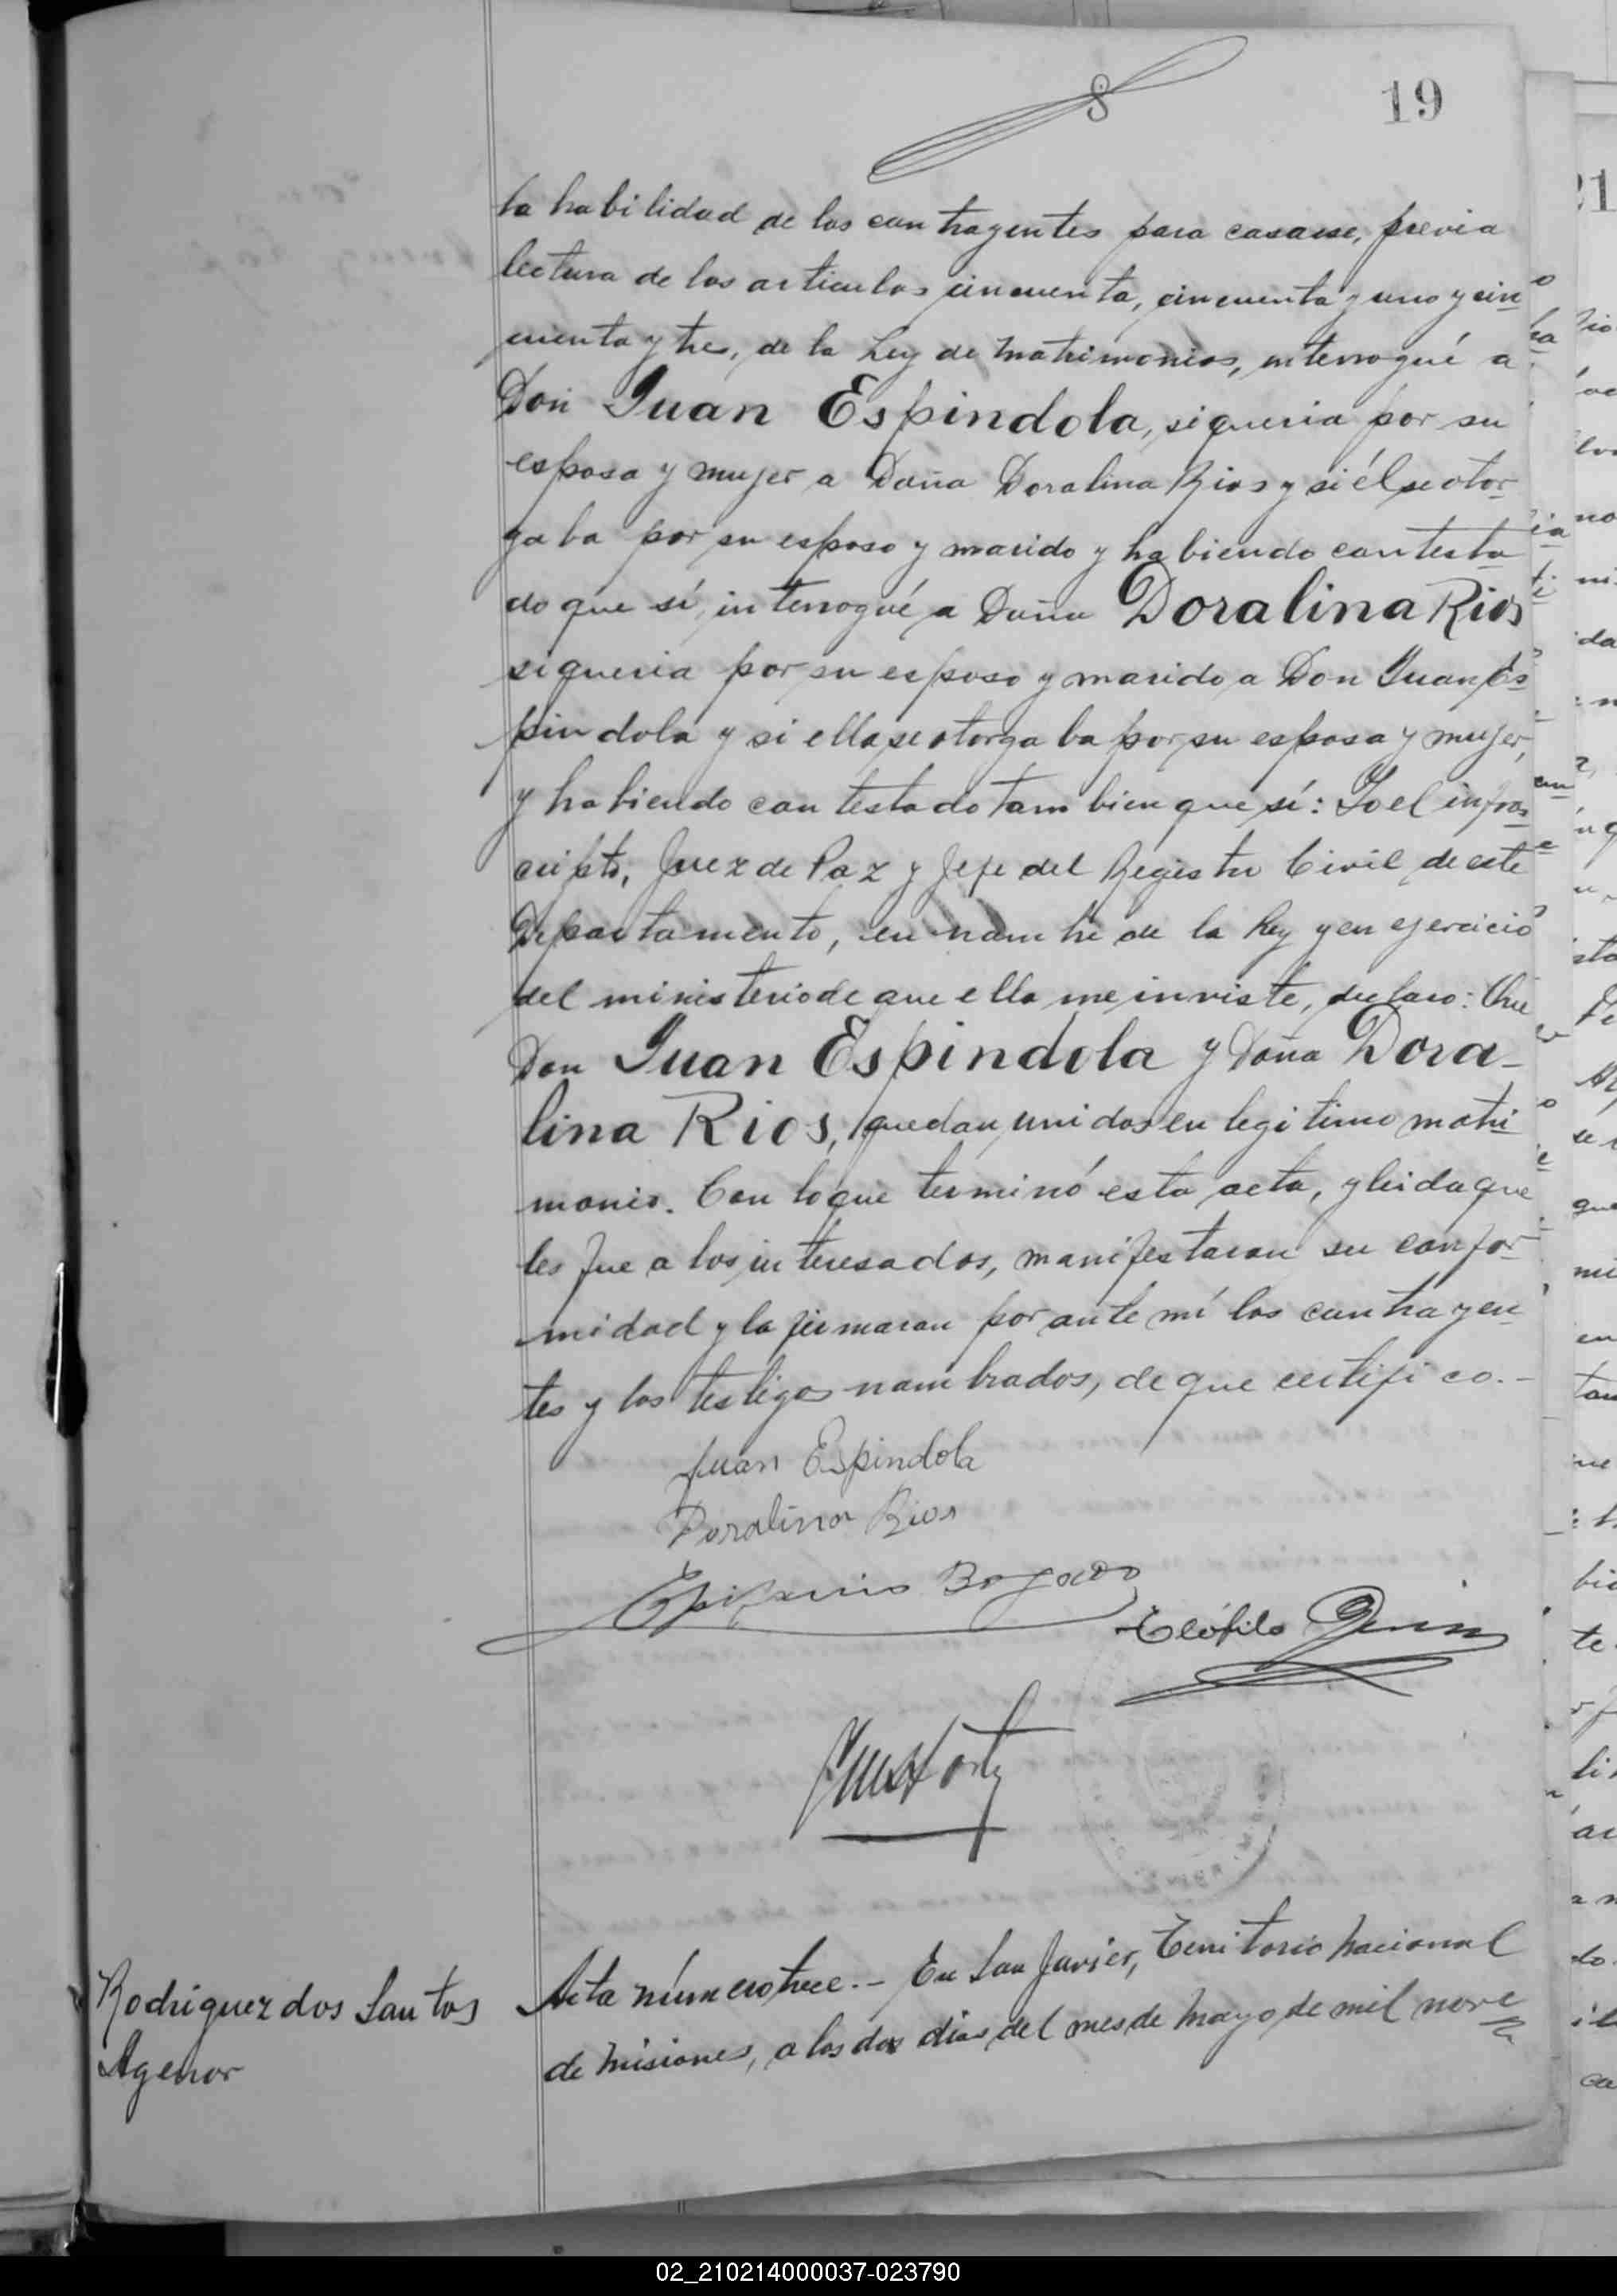 19
la habilidad de los contrayentes para casarse, previa
lectura de los articulos cincuenta, cincuenta y uno y cin
cuenta y tres, de la Ley de Matrimonios, interrogué a
Don Juan Espindola, si queria por su
esposa y mujer a Doña Doralina Rios y si él se otor
gaba por su esposo y marido y habiendo contesta
do que sí, interrogué a Doña Doralina Rios
si queria por su esposo y marido a Don Juan Es
pindola y si ella se otorgaba por su esposa y mujer,
y habiendo contestado tambien que sí: Yo el infras
cripto, Juez de Paz y Jefe del Registro Civil de este
Departamento, en nombre de la Ley y en ejercicio
del ministerio de que ella me inviste, declaro: Que
Don Juan Espindola y Doña Dora-
lina Rios, quedan unidos en legitimo matri
monio. Con lo que terminó esta acta, y leida que
les fue a los interesados, manifestaron su confor
midad y la firmaron por ante mí los contrayen
tes y los testigos nombrados, de que certifico.-
Juan Espindola
Doralina Rios
Epifanio Bogado
Teófilo
Rodriguez dos Santos
Agenor
Acta número trece.- En San Javier, Territorio Nacional
de Misiones, a los dos dias del mes de Mayo de mil nove
02_210214000037-023790